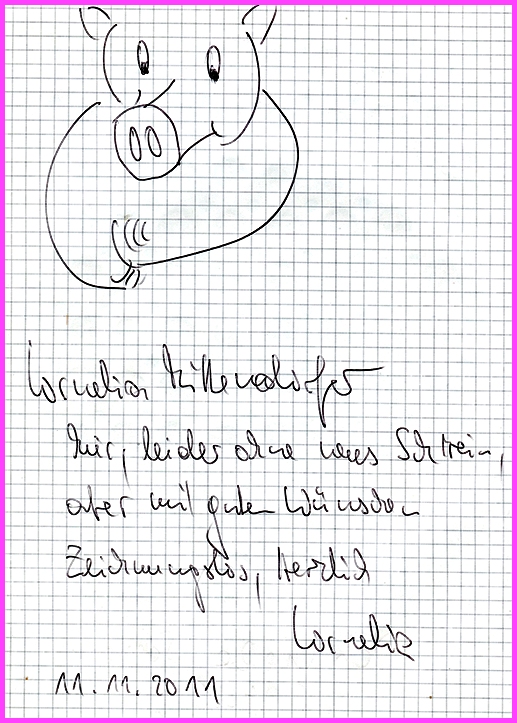 Cornelia Mittendorfer
leider ohne neues Schwein,
aber mit guten Wünschen
Zeichnungslos, Herzlich
Cornelia
11.11.2011